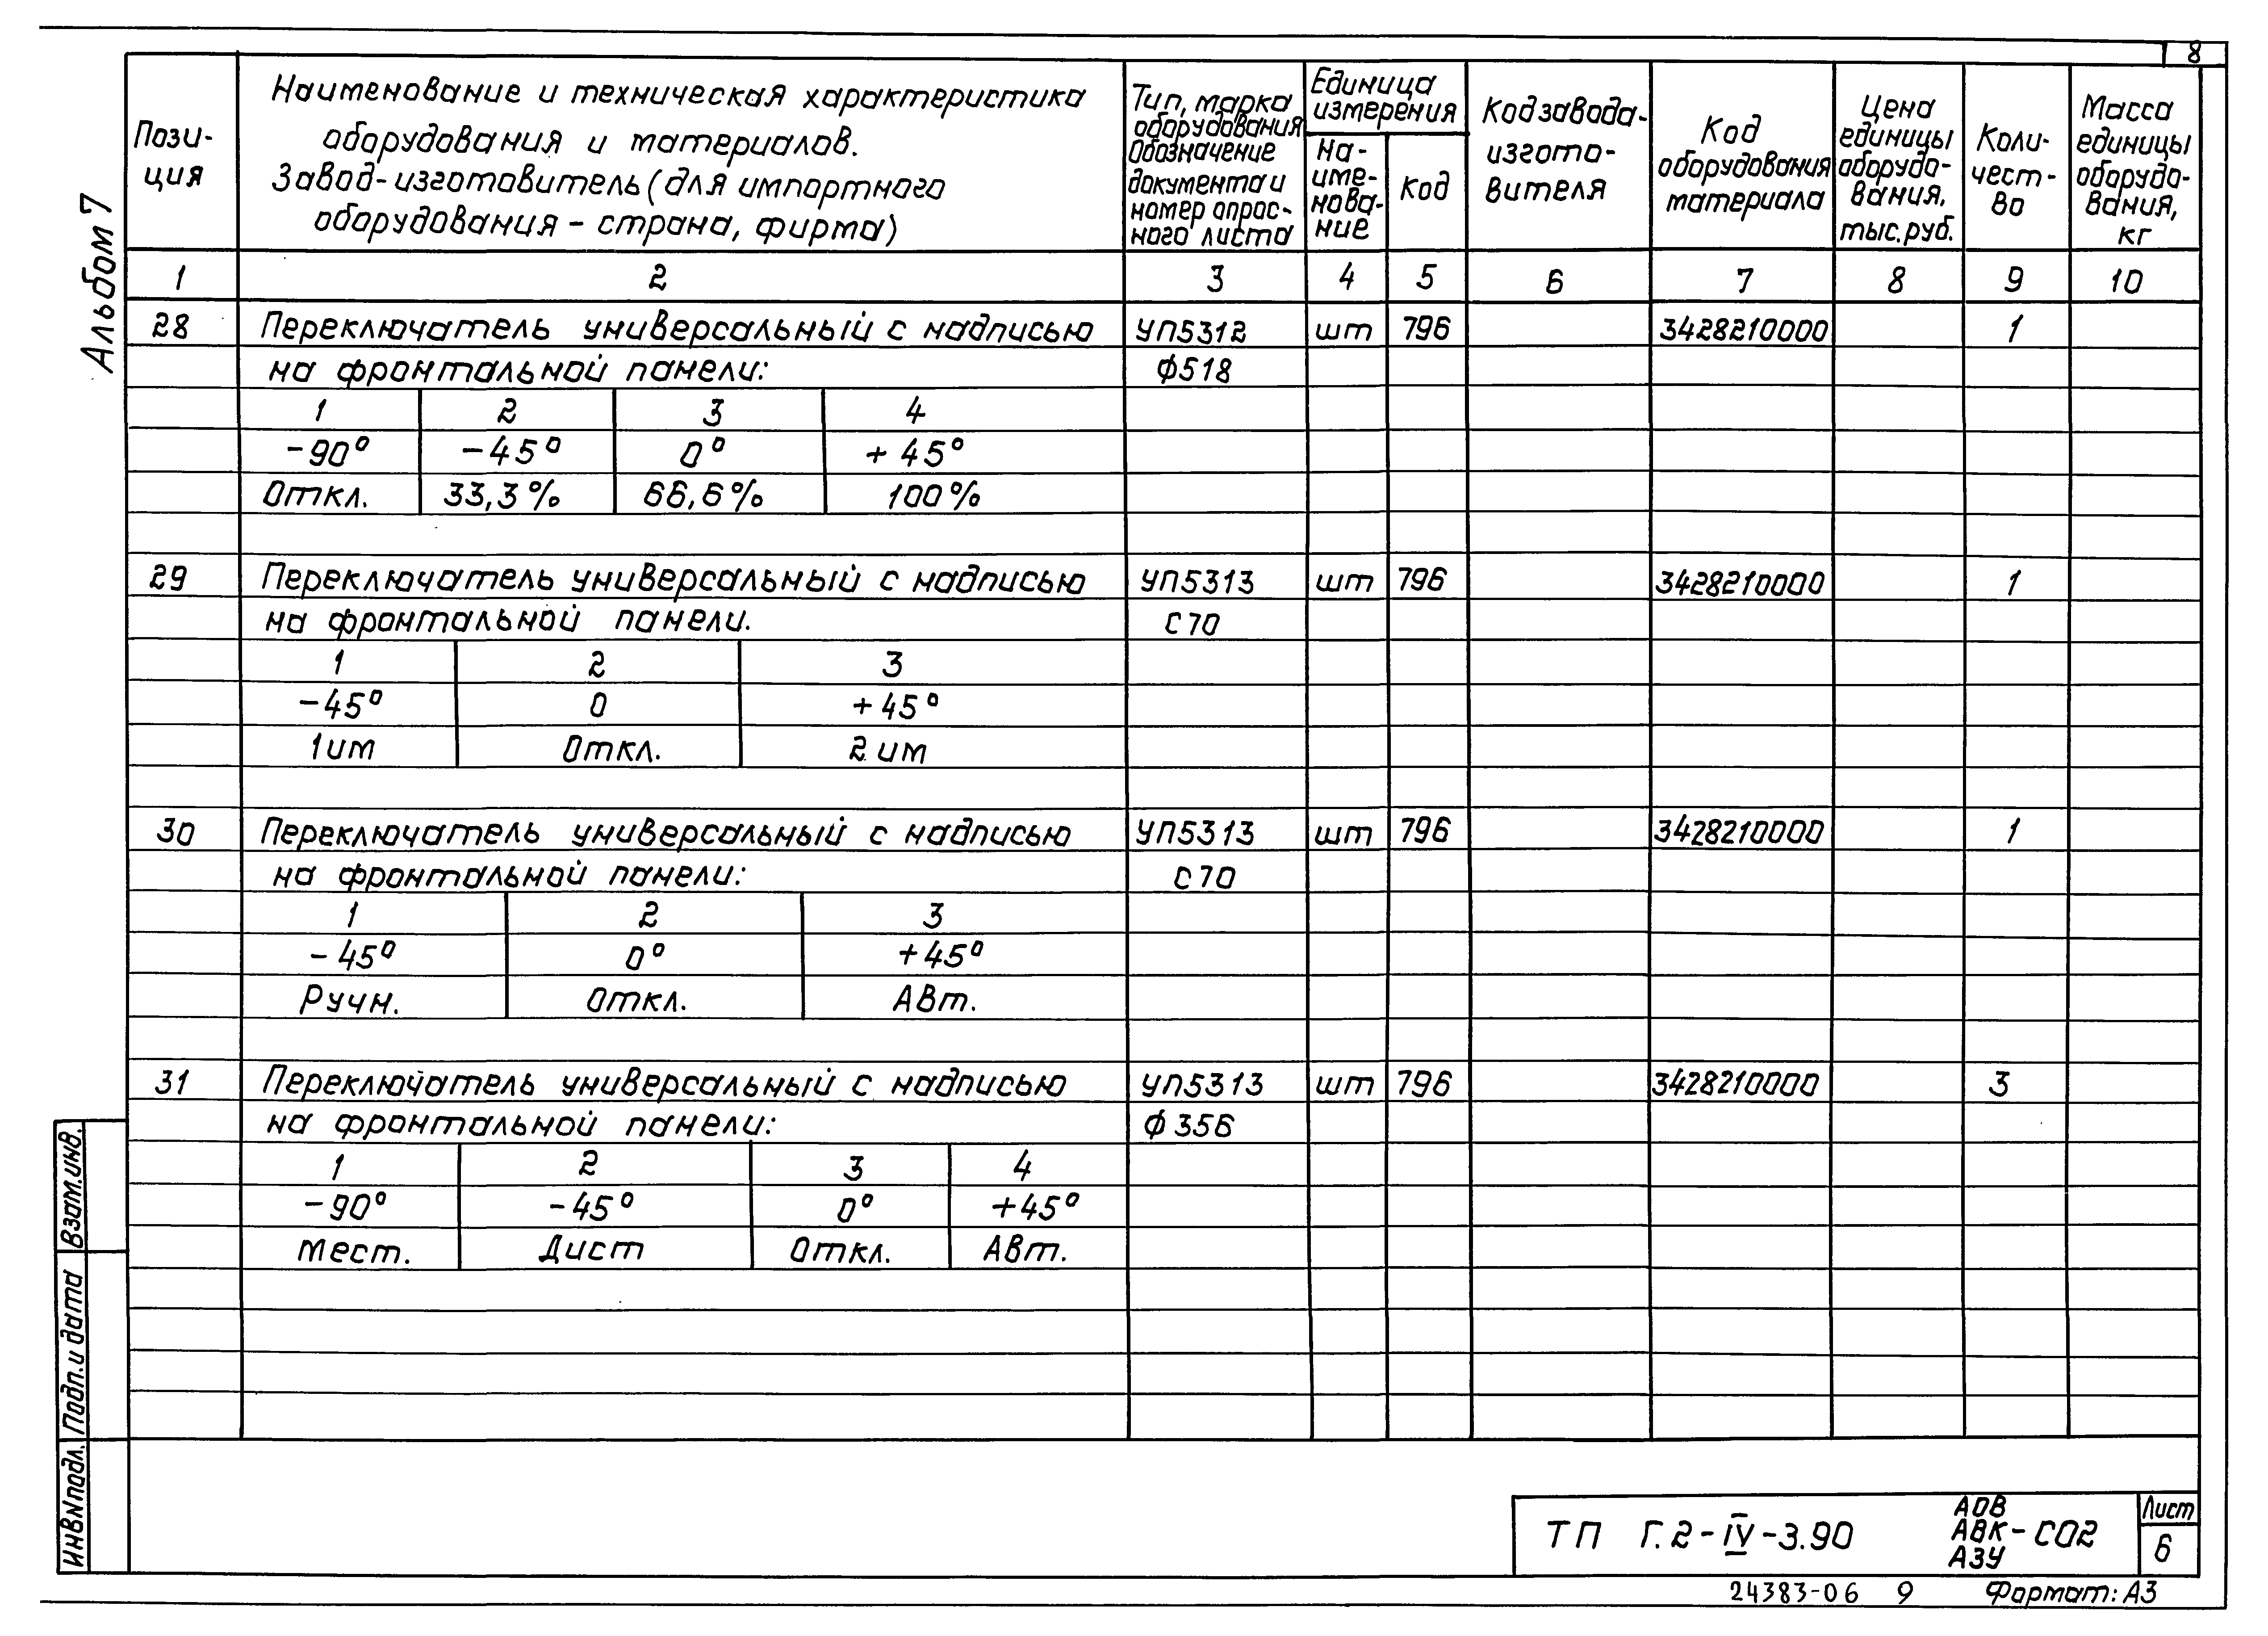 8
Альбом 7
Пози-
ция
Наименование и техническая характеристика
оборудования и материалов.
Завод-изготовитель (для импортного
оборудования - страна, фирма)
Тип, марка
оборудования
Обозначение
документа и
номер опрос-
ного листа
Единица
измерения
На-
име-
нова-
ние
Код
Код завода-
изгото-
вителя
Код
оборудования
материала
Цена
единицы
оборудо-
вания,
тыс.руб.
Коли-
чест-
во
Масса
единицы
оборудо-
вания,
кг
1 2 3 4 5 6 7 8 9 10
28 Переключатель универсальный с надписью УП5312 шт 796 3428210000 1
на фронтальной панели: Ф518
1 2 3 4
-90° -45° 0° +45°
Откл. 33,3% 66,6% 100%
29 Переключатель универсальный с надписью УП5313 шт 796 3428210000 1
на фронтальной панели. С70
1 2 3
-45° 0 +45°
1им Откл. 2им
30 Переключатель универсальный с надписью УП5313 шт 796 3428210000 1
на фронтальной панели: С70
1 2 3
-45° 0° +45°
Ручн. Откл. Авт.
31 Переключатель универсальный с надписью УП5313 шт 796 3428210000 3
на фронтальной панели: Ф356
1 2 3 4
-90° -45° 0° +45°
Мест. Дист Откл. Авт.
Взам.инв.
Подп.и дата
ИНВ№подл.
ТП Г.2-IV-3.90
АОВ
АВК-СО2
АЗУ
Лист
6
24383-06 9 Формат: А3